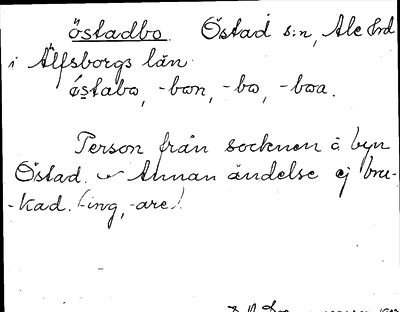 östadbo. Östad s:n, Ale hrd
i Älfsborgs län.
östabo, -bon, -bo, -boa.
Person från socknen å byn
Östad. Annan ändelse ej bru-
-kad. (-ing, -are).